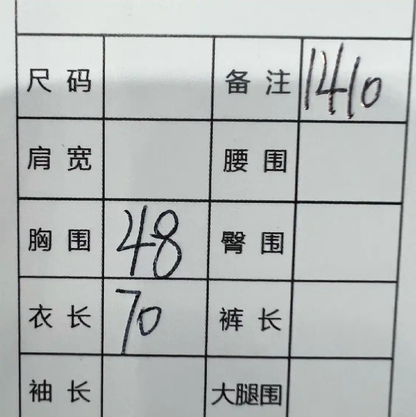 尺码 备注 1410
肩宽 腰围
胸围 48 臀围
衣长 70 裤长
袖长 大腿围